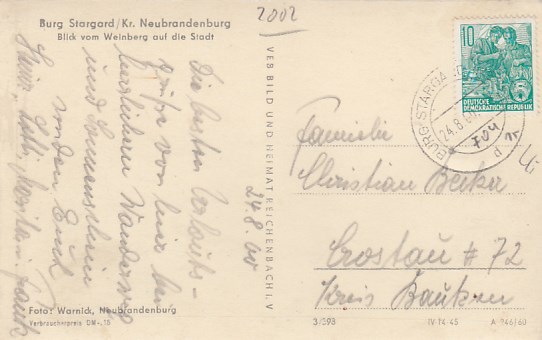 Burg Stargard/Kr. Neubrandenburg
Blick vom Weinberg auf die Stadt
2002
10
DEUTSCHE
DEMOKRATISCHE REPUBLIK
BURG STARGARD
24.8.60
d
704
VEB BILD UND HEIMAT REICHENBACH I. V
24.8.60
Die besten Urlaubs-
grüße von hier bei
herrlichem
und Sonnenschein
senden Euch
Familie
Christian Becka
Crostau # 72
Kreis Bautzen
Foto: Warnick, Neubrandenburg
Verbraucherpreis DM -,15
3/598
IV-14-45
A 946/60